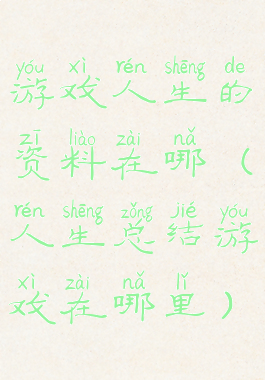 yóu xì rén shēng de
游戏人生的
zī liào zài nǎ
资料在哪（
rén shēng zǒng jié yóu
人生总结游
xì zài nǎ lǐ
戏在哪里）